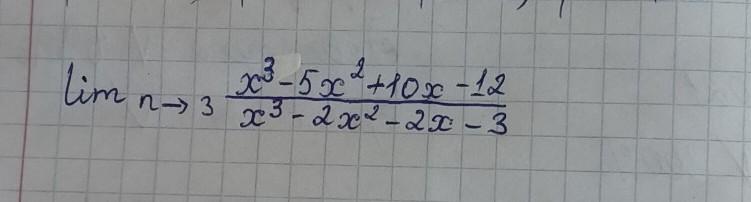 lim n→3 (x³-5x²+10x-12)/(x³-2x²-2x-3)